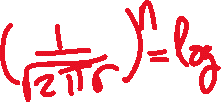 (1/√2πσ)^n = log